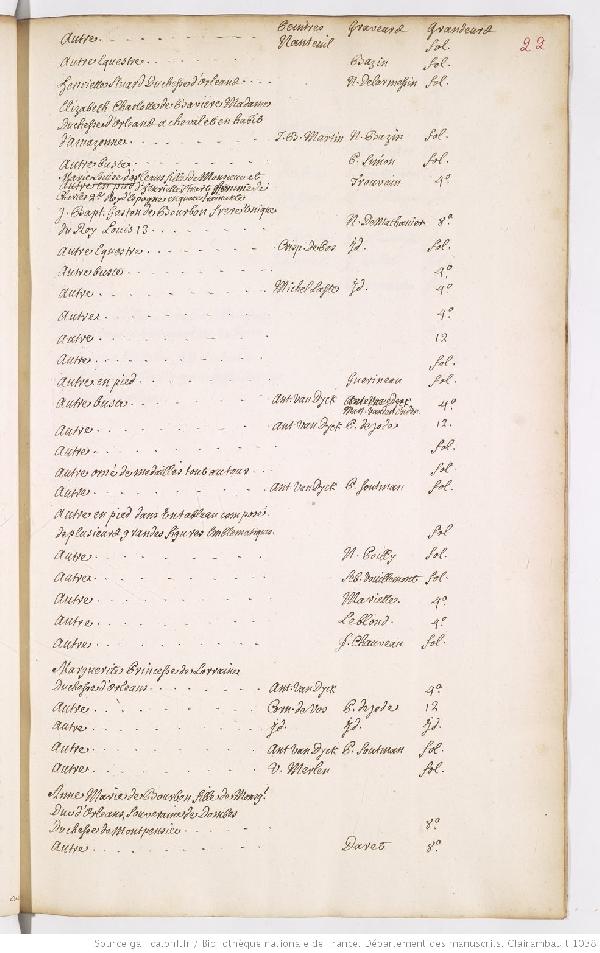 Peintres Graveurs Grandeurs
Autre Nanteuil fol. 22
Autre Equestre Bazin fol.
Henriette Stuard Duchesse d'Orleans N. Delarmessin fol.
Elizabeth Charlotte de Baviere Madame
Duchesse d'Orleans a cheval et en habit
d'amazonne J. B. Martin N. Bazin fol.
Autre buste P. Simon fol.
Marie Louise d'Orleans fille de Monsieur et
d'Henriette Stuart femme de Trouvain 4º
Charles 2e Roy d'Espagne
J. Bapt. Gaston de Bourbon frere Unique
du Roy Louis 13 N. De Mathoniere 8º
Autre Equestre Crisp. de Pas Jd. fol.
Autre buste 4º
Autre Michel Lasne Jd. 4º
Autre 4º
Autre 12
Autre fol.
Autre en pied Guerineau fol.
Autre buste Ant. Van Dyck 4º
Autre Ant Van Dyck P. de Jode 12.
Autre fol.
Autre orné de medailles tout autour fol.
Autre Ant Van Dyck P. Soutman fol.
Autre en pied dans un tableau composé
de plusieurs grandes figures Emblematiques fol
Autre N. Poilly fol.
Autre Seb. Vouillemont fol.
Autre Mariette 4º
Autre Leblond 4º
Autre F. Chauveau fol.
Marguerite Princesse de Lorraine
Duchesse d'Orleans Ant. Van Dyck 4º
Autre Corn. de Vos P. de Jode 12
Autre Jd. Jd. Jd.
Autre Ant Van Dyck P. Soutman fol.
Autre V. Merlen fol.
Anne Marie de Bourbon fille de Monsr.
Duc d'Orleans, Souveraine de Dombes
Duchesse de Montpensier 8º
Autre Daret 8º
Source gallica.bnf.fr / Bibliothèque nationale de France. Département des manuscrits. Clairambault 1038